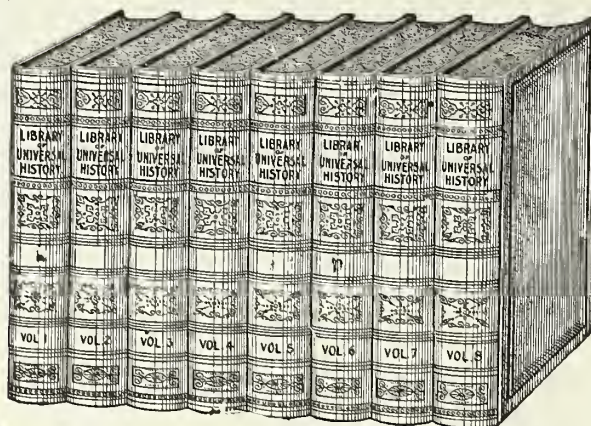 LIBRARY
OF
UNIVERSAL
HISTORY
VOL 1
LIBRARY
OF
UNIVERSAL
HISTORY
VOL 2
LIBRARY
OF
UNIVERSAL
HISTORY
VOL 3
LIBRARY
OF
UNIVERSAL
HISTORY
VOL 4
LIBRARY
OF
UNIVERSAL
HISTORY
VOL 5
LIBRARY
OF
UNIVERSAL
HISTORY
VOL 6
LIBRARY
OF
UNIVERSAL
HISTORY
VOL. 7
LIBRARY
OF
UNIVERSAL
HISTORY
VOL. 8